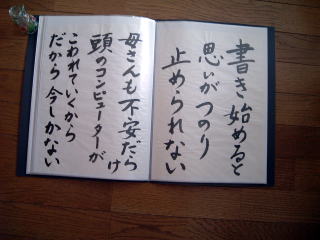 書き始めると
思いがつのり
止められない
母さんも不安だらけ
頭のコンピューターが
こわれていくから
だから今しかない